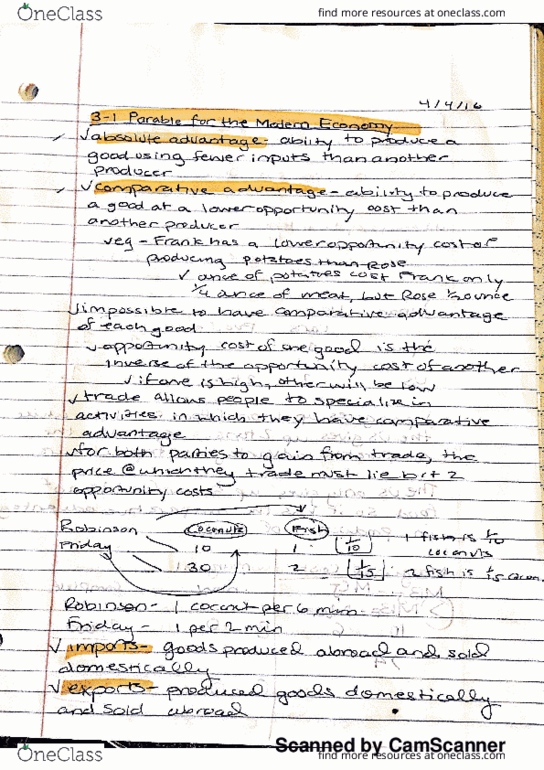 OneClass
find more resources at oneclass.com
4/4/16
3-1 Parable for the Modern Economy
✓absolute advantage- ability to produce a
good using fewer inputs than another
producer
✓comparative advantage- ability to produce
a good at a lower opportunity cost than
another producer
✓eg - Frank has a lower opportunity cost of
producing potatoes than Rose
✓ ounce of potatoes cost Frank only
1/4 ounce of meat, but Rose 1/2 ounce
✓impossible to have comparative advantage
of each good
✓opportunity cost of one good is the
inverse of the opportunity cost of another
✓if one is high, other will be low
✓trade allows people to specialize in
activities in which they have comparative
advantage
✓for both parties to gain from trade, the
price @ which they trade must lie b/t 2
opportunity costs
Robinson Coconuts Fish
Friday 10 1 1/10 1 fish is 1/10 coconuts
30 2 1/15 2 fish is 1/15 cocon.
Robinson- 1 coconut per 6 min
Friday- 1 per 2 min
✓ imports- goods produced abroad and sold
domestically
✓ exports- produced goods domestically
and sold abroad
Scanned by CamScanner
OneClass
find more resources at oneclass.com